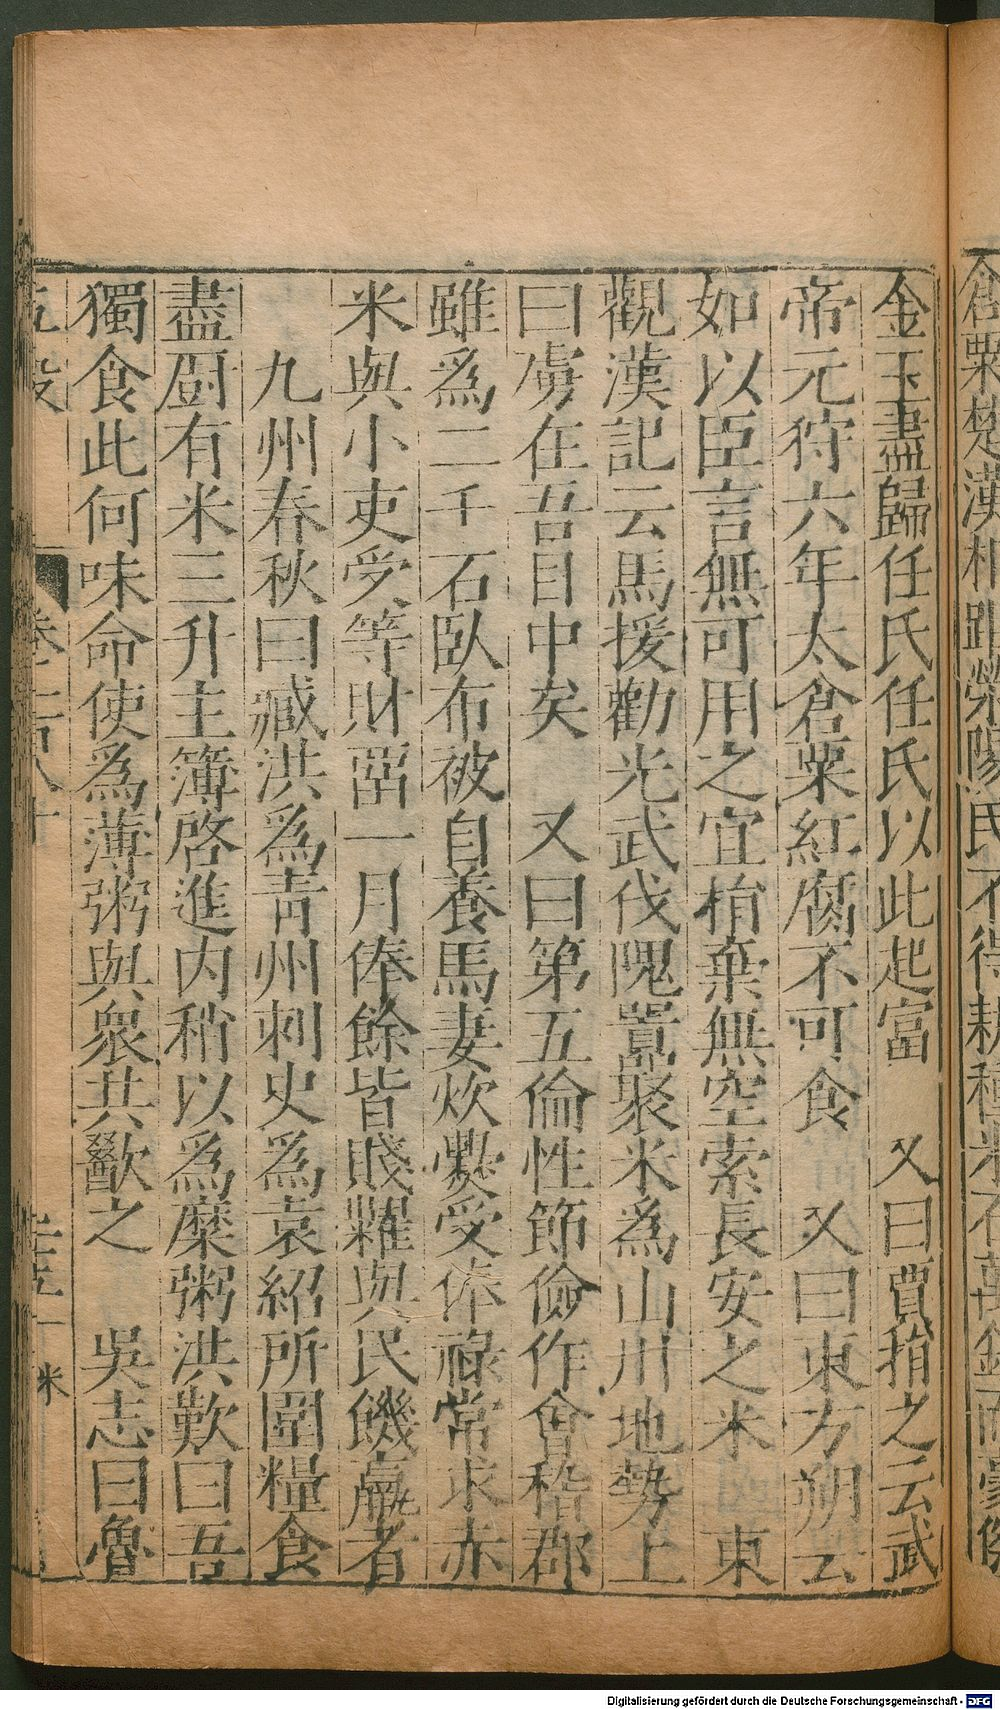 金玉盡歸任氏任氏以此起富　又曰賈捐之云武
帝元狩六年太倉粟紅腐不可食　又曰東方朔云
如以臣言無可用之宜捐棄無空索長安之米　東
觀漢記云馬援勸光武伐隗囂聚米爲山川地勢上
曰虜在吾目中矣　又曰第五倫性節儉作會稽郡
雖爲二千石臥布被自養馬妻炊爨受俸祿常求赤
米與小吏受等財留一月俸餘皆賤糶與民饑羸者
　九州春秋曰臧洪爲青州刺史爲袁紹所圍糧食
盡厨有米三升主簿啓進内稍以爲糜粥洪歎曰吾
獨食此何味命使爲薄粥與衆共歠之　吳志曰魯
卷二百八十
米
Digitalisierung gefördert durch die Deutsche Forschungsgemeinschaft - DFG